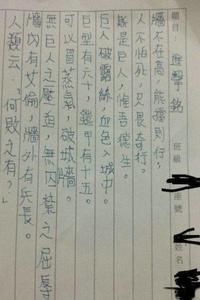 題目：進擊銘 班級 座號 姓名
牆不在高，能擋則行，
人不怕死，只畏奇行。
是巨人，惟吾德生。
巨人破露絲，血色入城中。
巨型有六十，鎧甲有十五。
可以冒蒸氣，破城牆。
無巨人之壓迫，無囚禁之屈辱
牆內有艾倫，牆外有兵長。
人類云：「何敗之有？」